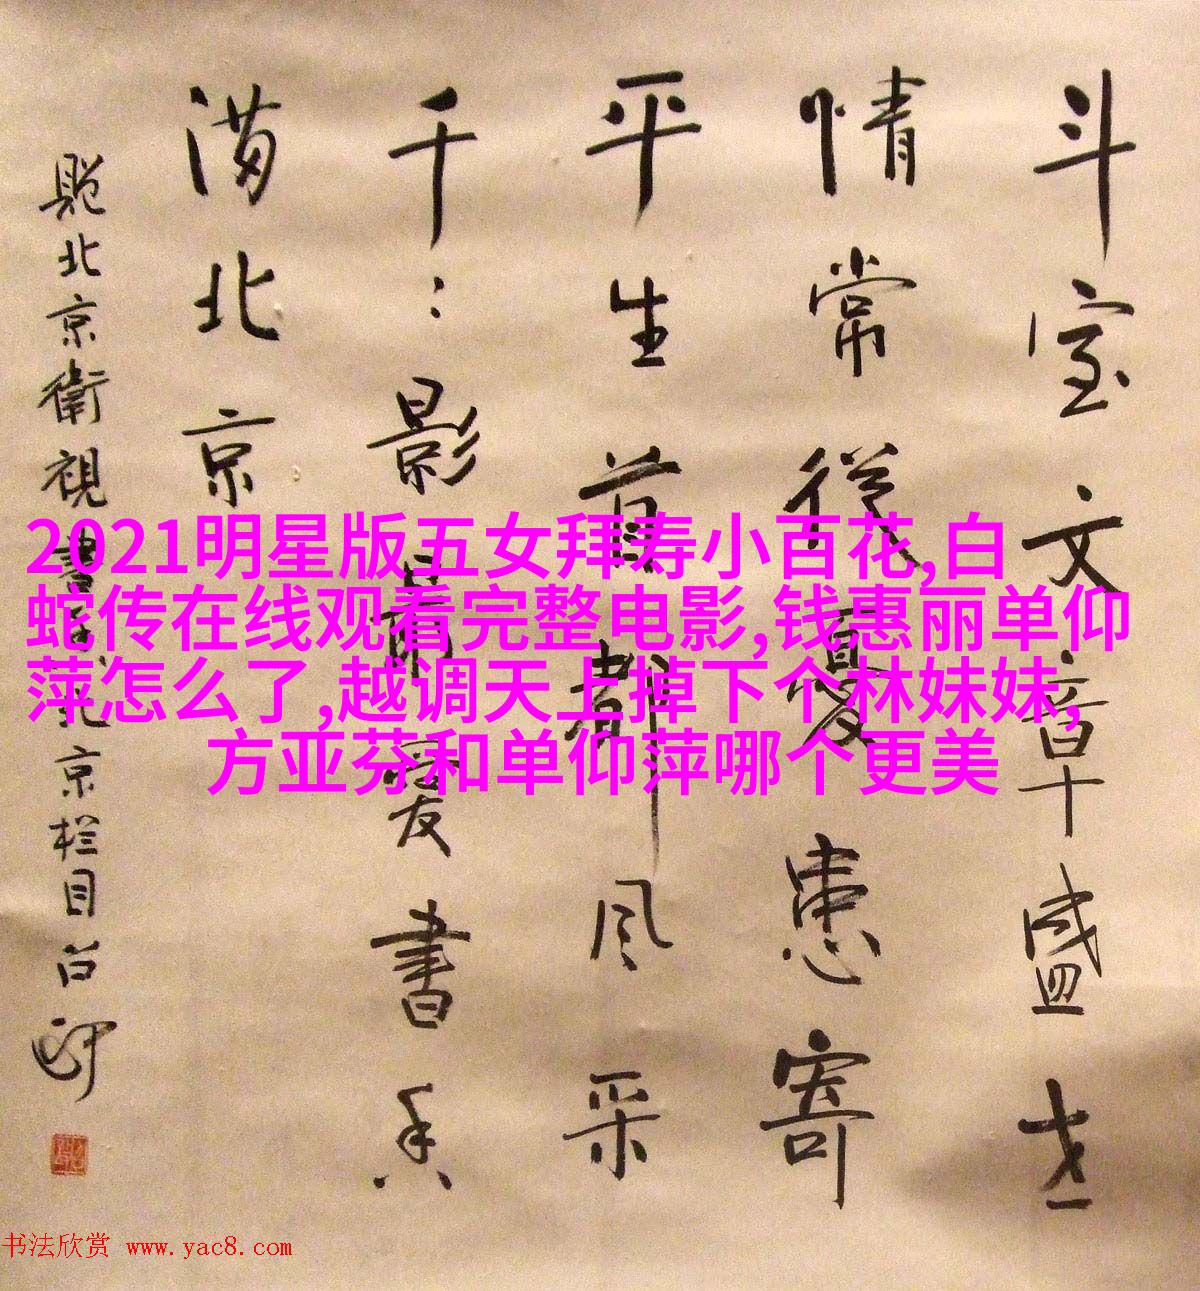 斗室文章盛世
情常從憂患寄
平生首都風采
千:影
愛書香
满北京
北京衛視書
北京栏目
2021明星版五女拜寿小百花,白
蛇传在线观看完整电影,钱惠丽单仰
萍怎么了,越调天上掉下个林妹妹,
方亚芬和单仰萍哪个更美
书法欣赏 www.yac8.com